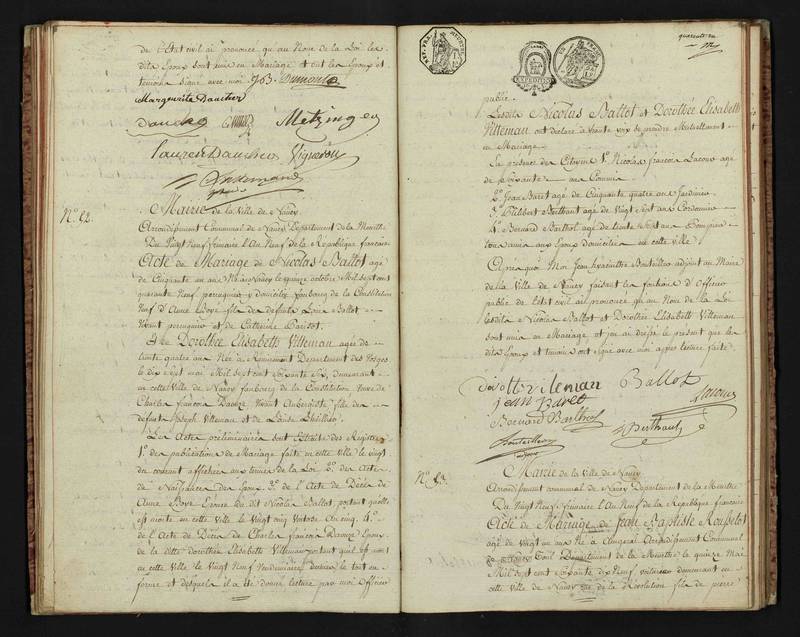 de l'Etat civil ai prononcé qu'au Nom de la Loi les
dits Epoux sont unis en Mariage et ont les Epoux et
temoins signé avec moi
Margueritte Dauchez
Metzinger
Vigneron
N.° 52.
Mairie de la Ville de Nancy
Arrondissement Communal de Nancy Departement de la Meurthe
Du Vingt Neuf frimaire l'An Neuf de la Republique française
Acte de Mariage de Nicolas Ballot agé
de Cinquante un ans Né à Nancy le quinze octobre Mil sept cent
quarante Neuf perruquier y domicilié faubourg de la Constitution
Veuf d'Anne Boyé fils des defunts Louis Ballot
Vivant perruquier et de Catherine Parisot.
Et de Dorothée Elisabeth Villeman agée de
trente quatre ans Née à Remiremont Departement des Vosges
le dix Sept mai Mil Sept cent Soixante Six, demeurant
en cette Ville de Nancy faubourg de la Constitution Veuve de
Charles françois Vivant Aubergiste fille des
defunts Joseph Villeman et de Louise
Les Actes preliminaires sont Extraits des Registres
1.° des publications de Mariage faite en cette Ville le Vingt
du courant affichées aux termes de la Loi 2.° des Actes
de Naissances des Epoux. 3.° de l'Acte de Décès de
Anne Boyé Epouse du dit Nicolas Ballot, portant qu'elle
est morte en cette Ville le Vingt cinq Ventose An cinq. 4.°
de l'Acte de Décès de Charles françois Epoux
de la ditte dorothée Elisabeth Villeman portant qu'il est mort
en cette Ville le Vingt Neuf Vendemiaire dernier le tout en
forme et desquels il a été donné lecture par moi Officier
quarante un
public.
Lesdits Nicolas Ballot et Dorothée Elisabeth
Villeman ont declaré à haute voix se prendre Mutuellement
en Mariage
En presence des Citoyens 1.° Nicolas francois Lacour agé
de Soixante ans Commis
2.° Jean Baret agé de Cinquante quatre ans Jardinier
3.° Philibert Berthaut agé de Vingt Sept ans Cordonnier
4.° Bernard Barthol agé de trente Sept ans
tous amis aux Epoux domiciliés en cette Ville
Après quoi Moi Jean hyacinthe Bouteiller adjoint au Maire
de la Ville de Nancy faisant les fonctions d'Officier
public de l'état civil ai prononcé qu'au Nom de la Loi
lesdits Nicolas Ballot et Dorothée Elisabeth Villeman
sont unis en Mariage et j'ai ai dressé le present que les
dits Epoux et temoins ont signé avec moi après lecture faite
vileman Ballot
jean Baret Lacour
Bernard Barthol
Berthaut
N.° 53.
Mairie de la Ville de Nancy
Arrondissement communal de Nancy Departement de la Meurthe
Du Vingt Neuf frimaire l'An Neuf de la Republique française
Acte de Mariage de Jean Baptiste Rousselot
agé de vingt un ans Né à Arrondissement Communal
de Toul Departement de la Meurthe le quinze Mai
Mil Sept cent Soixante dix Neuf voiturier demeurant en
cette Ville de Nancy rue de la Révolution fils de pierre